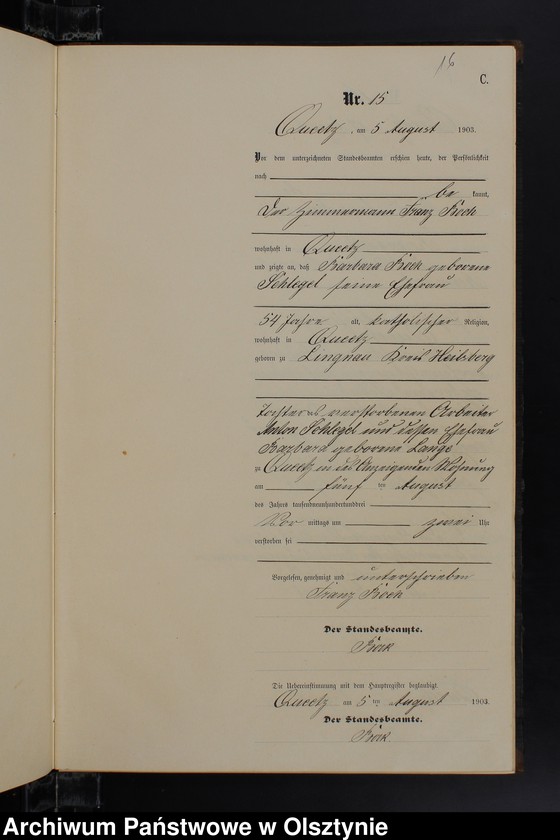 16
C.
Nr. 15
Queetz, am 5 August 1903.
Vor dem unterzeichneten Standesbeamten erschien heute, der Persönlichkeit
nach
be kannt,
Der Zimmermann Franz Kock
wohnhaft in Queetz
und zeigte an, daß Barbara Kock geborene
Schlegel seine Ehefrau
54 Jahre alt, katholischer Religion,
wohnhaft in Queetz
geboren zu Lingnau Kreis Heilsberg
Tochter des verstorbenen Arbeiter
Anton Schlegel und dessen Ehefrau
Barbara geborene Lange
zu Queetz in des Anzeigenden Wohnung
am fünf ten August
des Jahres tausendneunhundertunddrei
Vor mittags um zwei Uhr
verstorben sei
Vorgelesen, genehmigt und unterschrieben
Franz Kock
Der Standesbeamte.
Die Uebereinstimmung mit dem Hauptregister beglaubigt.
Queetz am 5 ten August 1903.
Der Standesbeamte.
Archiwum Państwowe w Olsztynie